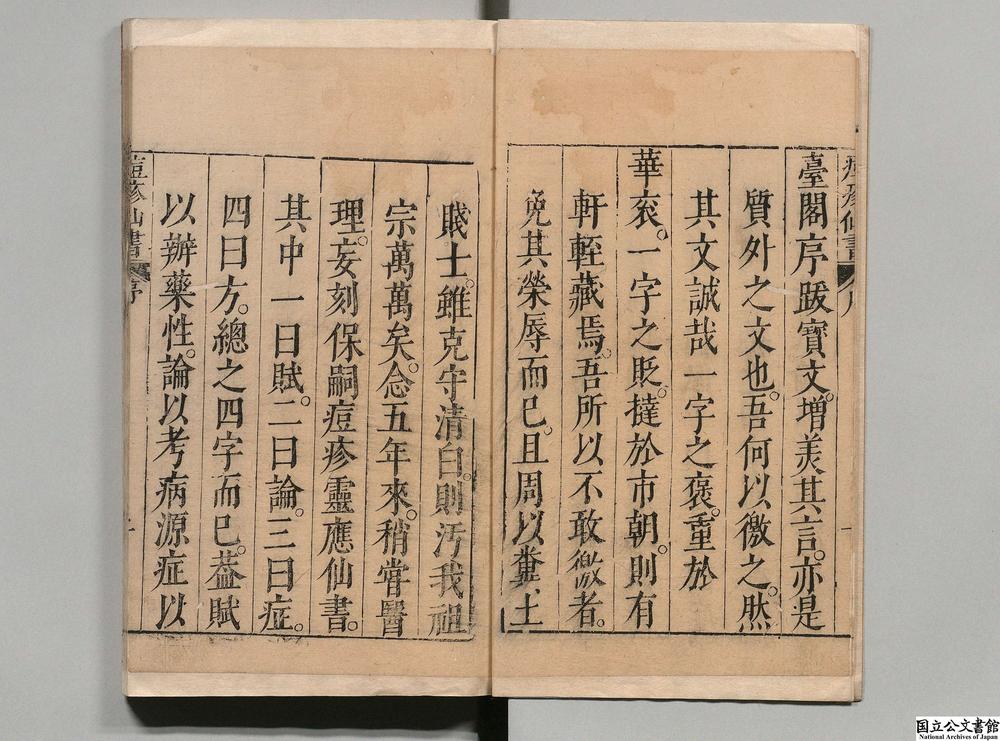 痘疹仙書 序
臺閣序跋寶文。增美其言。亦是
質外之文也。吾何以徼之。然
其文誠哉一字之褒。重於
華袞。一字之貶。撻於市朝。則有
軒輊藏焉。吾所以不敢徼者。
免其榮辱而已。且周以糞土
賤士。雖克守清白。則汚我祖
宗萬萬矣。念五年來。稍嘗醫
理。妄刻保嗣痘疹靈應仙書。
其中一曰賦。二曰論。三曰症。
四曰方。總之四字而已。蓋賦
以辦藥性。論以考病源症以
痘疹仙書 序
国立公文書館
National Archives of Japan